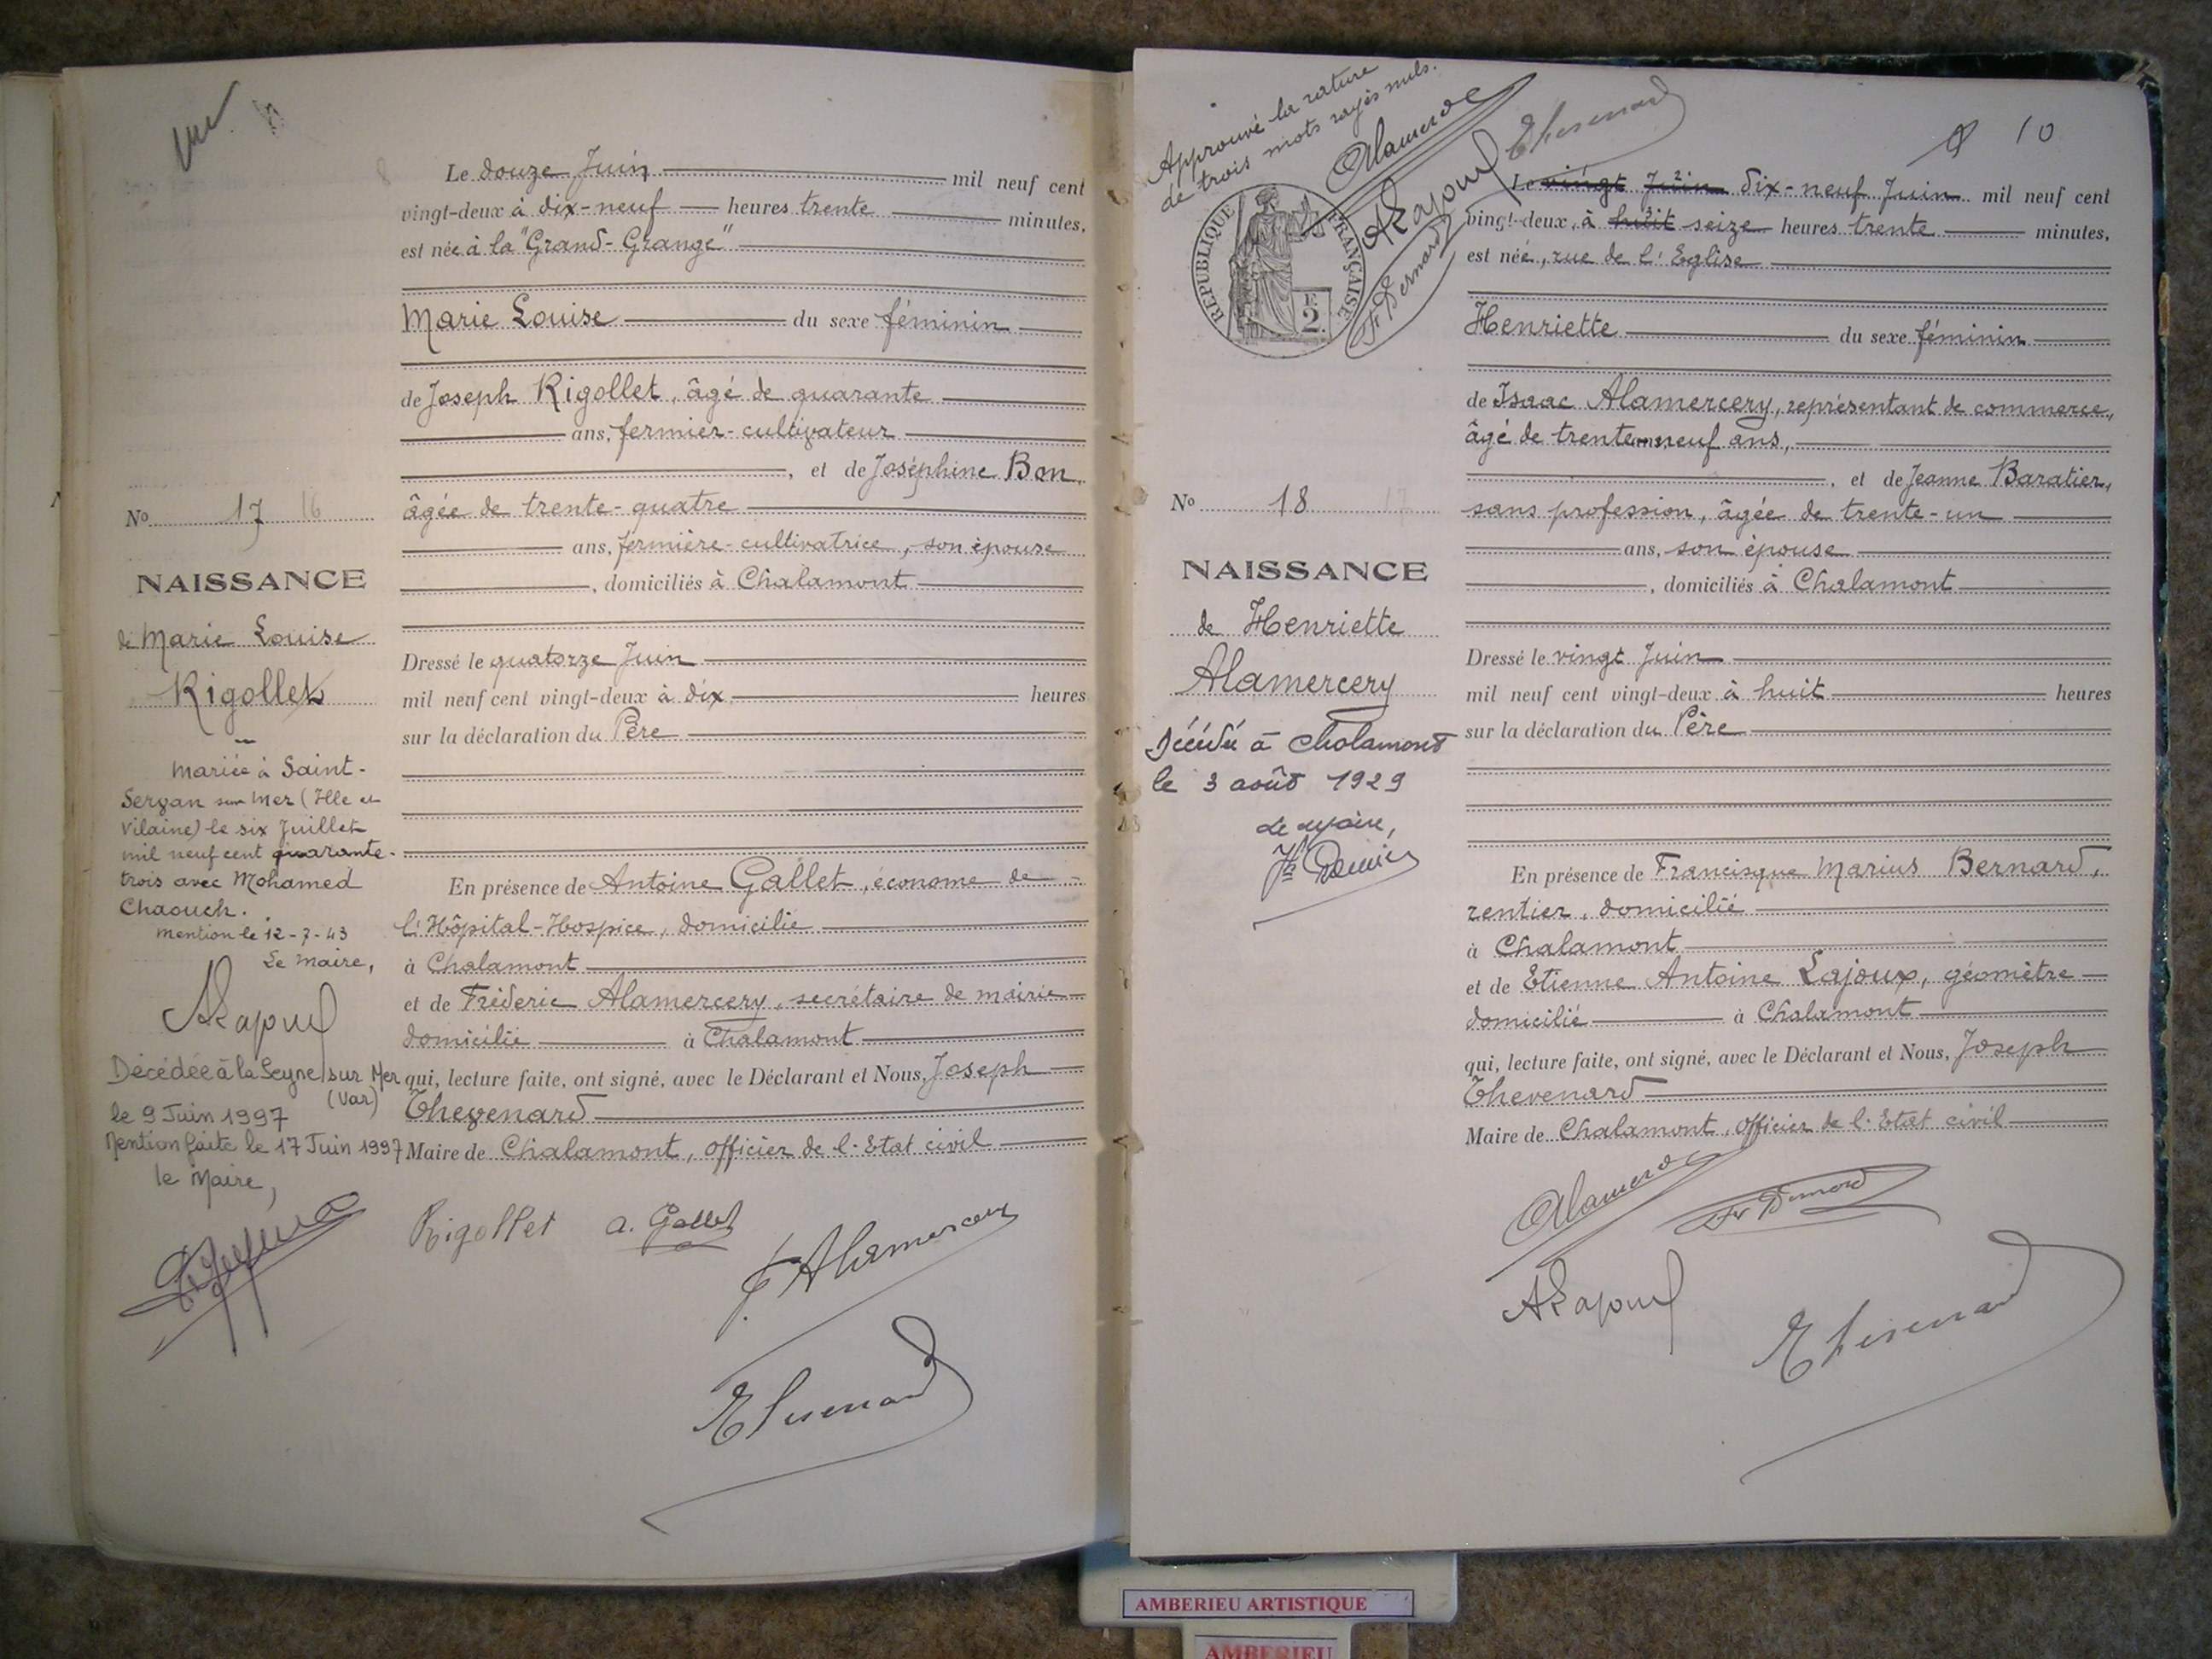 Le douze Juin mil neuf cent
vingt-deux à dix-neuf heures trente minutes,
est née à la "Grand-Grange"
Marie Louise du sexe féminin
de Joseph Rigollet, âgé de quarante
ans, fermier-cultivateur
, et de Joséphine Bon,
âgée de trente-quatre
ans, fermière-cultivatrice, son épouse
, domiciliés à Chalamont
Dressé le quatorze Juin
mil neuf cent vingt-deux à dix heures
sur la déclaration du Père
En présence de Antoine Gallet, économe de
l'Hôpital-Hospice, domicilié
à Chalamont
et de Fréderic Alamercery, secrétaire de mairie
domicilié à Chalamont
qui, lecture faite, ont signé, avec le Déclarant et Nous, Joseph
Thevenard
Maire de Chalamont, officier de l'Etat civil
Rigollet A. Gallet
F. Alamercery
Thevenard
No 17 16
NAISSANCE
de Marie Louise
Rigollet
mariée à Saint-
Servan sur Mer (Ille et
Vilaine) le six Juillet
mil neuf cent quarante-
trois avec Mohamed
Chaouch.
mention le 12-7-43
Le Maire,
ALajoux
Décédée à la Seyne sur Mer
(Var)
le 9 Juin 1997
Mention faite le 17 Juin 1997
le Maire,
Approuvé la rature
de trois mots rayés nuls.
Alamercery
ALajoux
Thevenard
Fr Bernard
REPUBLIQUE FRANÇAISE
F.
2.
10
Le vingt Juin dix-neuf Juin mil neuf cent
vingt-deux, à huit seize heures trente minutes,
est née, rue de l'Eglise
Henriette du sexe féminin
de Isaac Alamercery, représentant de commerce,
âgé de trente-neuf ans,
, et de Jeanne Baratier,
sans profession, âgée de trente-un
ans, son épouse
, domiciliés à Chalamont
Dressé le vingt Juin
mil neuf cent vingt-deux à huit heures
sur la déclaration du Père
En présence de Francisque Marius Bernard,
rentier, domicilié
à Chalamont
et de Etienne Antoine Lajoux, géomètre
domicilié à Chalamont
qui, lecture faite, ont signé, avec le Déclarant et Nous, Joseph
Thevenard
Maire de Chalamont, officier de l'Etat civil
Alamercery
Fr Bernard
ALajoux
Thevenard
No 18 17
NAISSANCE
de Henriette
Alamercery
Décédée à Chalamont
le 3 août 1929
Le Maire,
AMBERIEU ARTISTIQUE
AMBERIEU